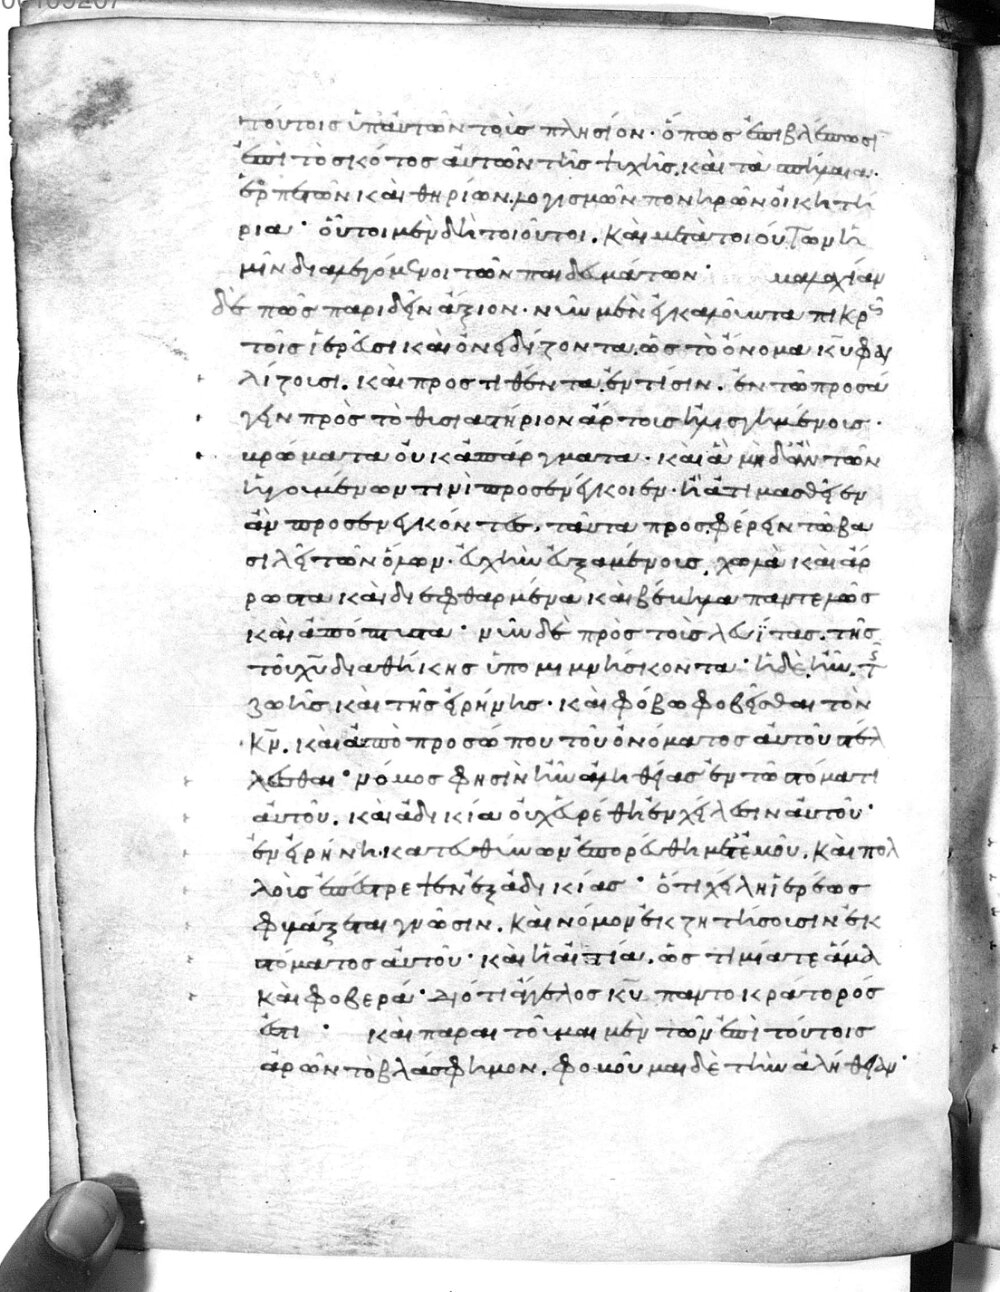 τούτοις ὑπαντῶν τοῖς πλησίον· ὅπως ἐπιβλέπωσι
ἐπὶ τὸ σκότος αὐτῶν τῆς ψυχῆς, καὶ τὰ σπήλαια·
ἑρπετῶν καὶ θηρίων. λογισμῶν πονηρῶν οἰκητή
ρια· οὗτοι μὲν δὴ τοιοῦτοι. καὶ μετὰ τοιούτων ἡ
μῖν διαλεγόμενοι τῶν παιδευμάτων· μαλαχίαν
δὲ πῶς παριδεῖν ἄξιον· νῦν μὲν ἐγκαλοῦντα πικρῶς
τοῖς ἱερεῦσι καὶ ὀνειδίζοντα, ὡς τὸ ὄνομα κ̅υ̅ φαυ
λίζουσι. καὶ προστιθέντα ἐν τίσιν. ἐν τῷ προσά
γειν πρὸς τὸ θυσιαστήριον ἄρτους ἠλισγημένους·
βρώματα οὐκ ἀπάργματα· καὶ ἃ μὴδ' ἂν τῶν
ἡγουμένων τινὶ προσενέγκοιεν· ἢ ἀτιμασθεῖεν
ἂν προσενεγκόντες. ταῦτα προσφέρειν τῷ βα
σιλεῖ τῶν ὅλων· εὐχὴν εὐξαμένους, χωλὰ καὶ ἄρ
ρωστα καὶ διεφθαρμένα καὶ βέβηλα παντελῶς
καὶ ἀπόπτυστα· νῦν δὲ πρὸς τοὺς λευΐτας. τῆς
τοῦ χ̅υ̅ διαθήκης ὑπομιμνήσκοντα· ἡ δὲ ἦν, τῆς
ζωῆς καὶ τῆς εἰρήνης· καὶ φόβῳ φοβεῖσθαι τὸν
κ̅ν̅. καὶ ἀπὸ προσώπου τοῦ ὀνόματος αὐτοῦ στέλ
λεσθαι· νόμος φησὶν ἦν ἀληθείας ἐν τῷ στόματι
αὐτοῦ. καὶ ἀδικία οὐχ εὑρέθη ἐν χείλεσιν αὐτοῦ·
ἐν εἰρήνῃ κατευθύνων ἐπορεύθη μετ' ἐμοῦ. καὶ πολ
λοὺς ἐπέστρεψεν ἐξ ἀδικίας· ὅτι χείλη ἱερέως
φυλάξεται γνῶσιν. καὶ νόμον ἐκζητήσουσιν ἐκ
στόματος αὐτοῦ· καὶ ἡ αἰτία. ὡς τιμία τε ἅμα
καὶ φοβερά· διότι ἄγγελος κ̅υ̅ παντοκράτορός
ἐστι· καὶ παραιτοῦμαι μὲν τῶν ἐπὶ τούτοις
ἀρῶν τὸ βλάσφημον. φοβοῦμαι δὲ τὴν ἀλήθειαν·